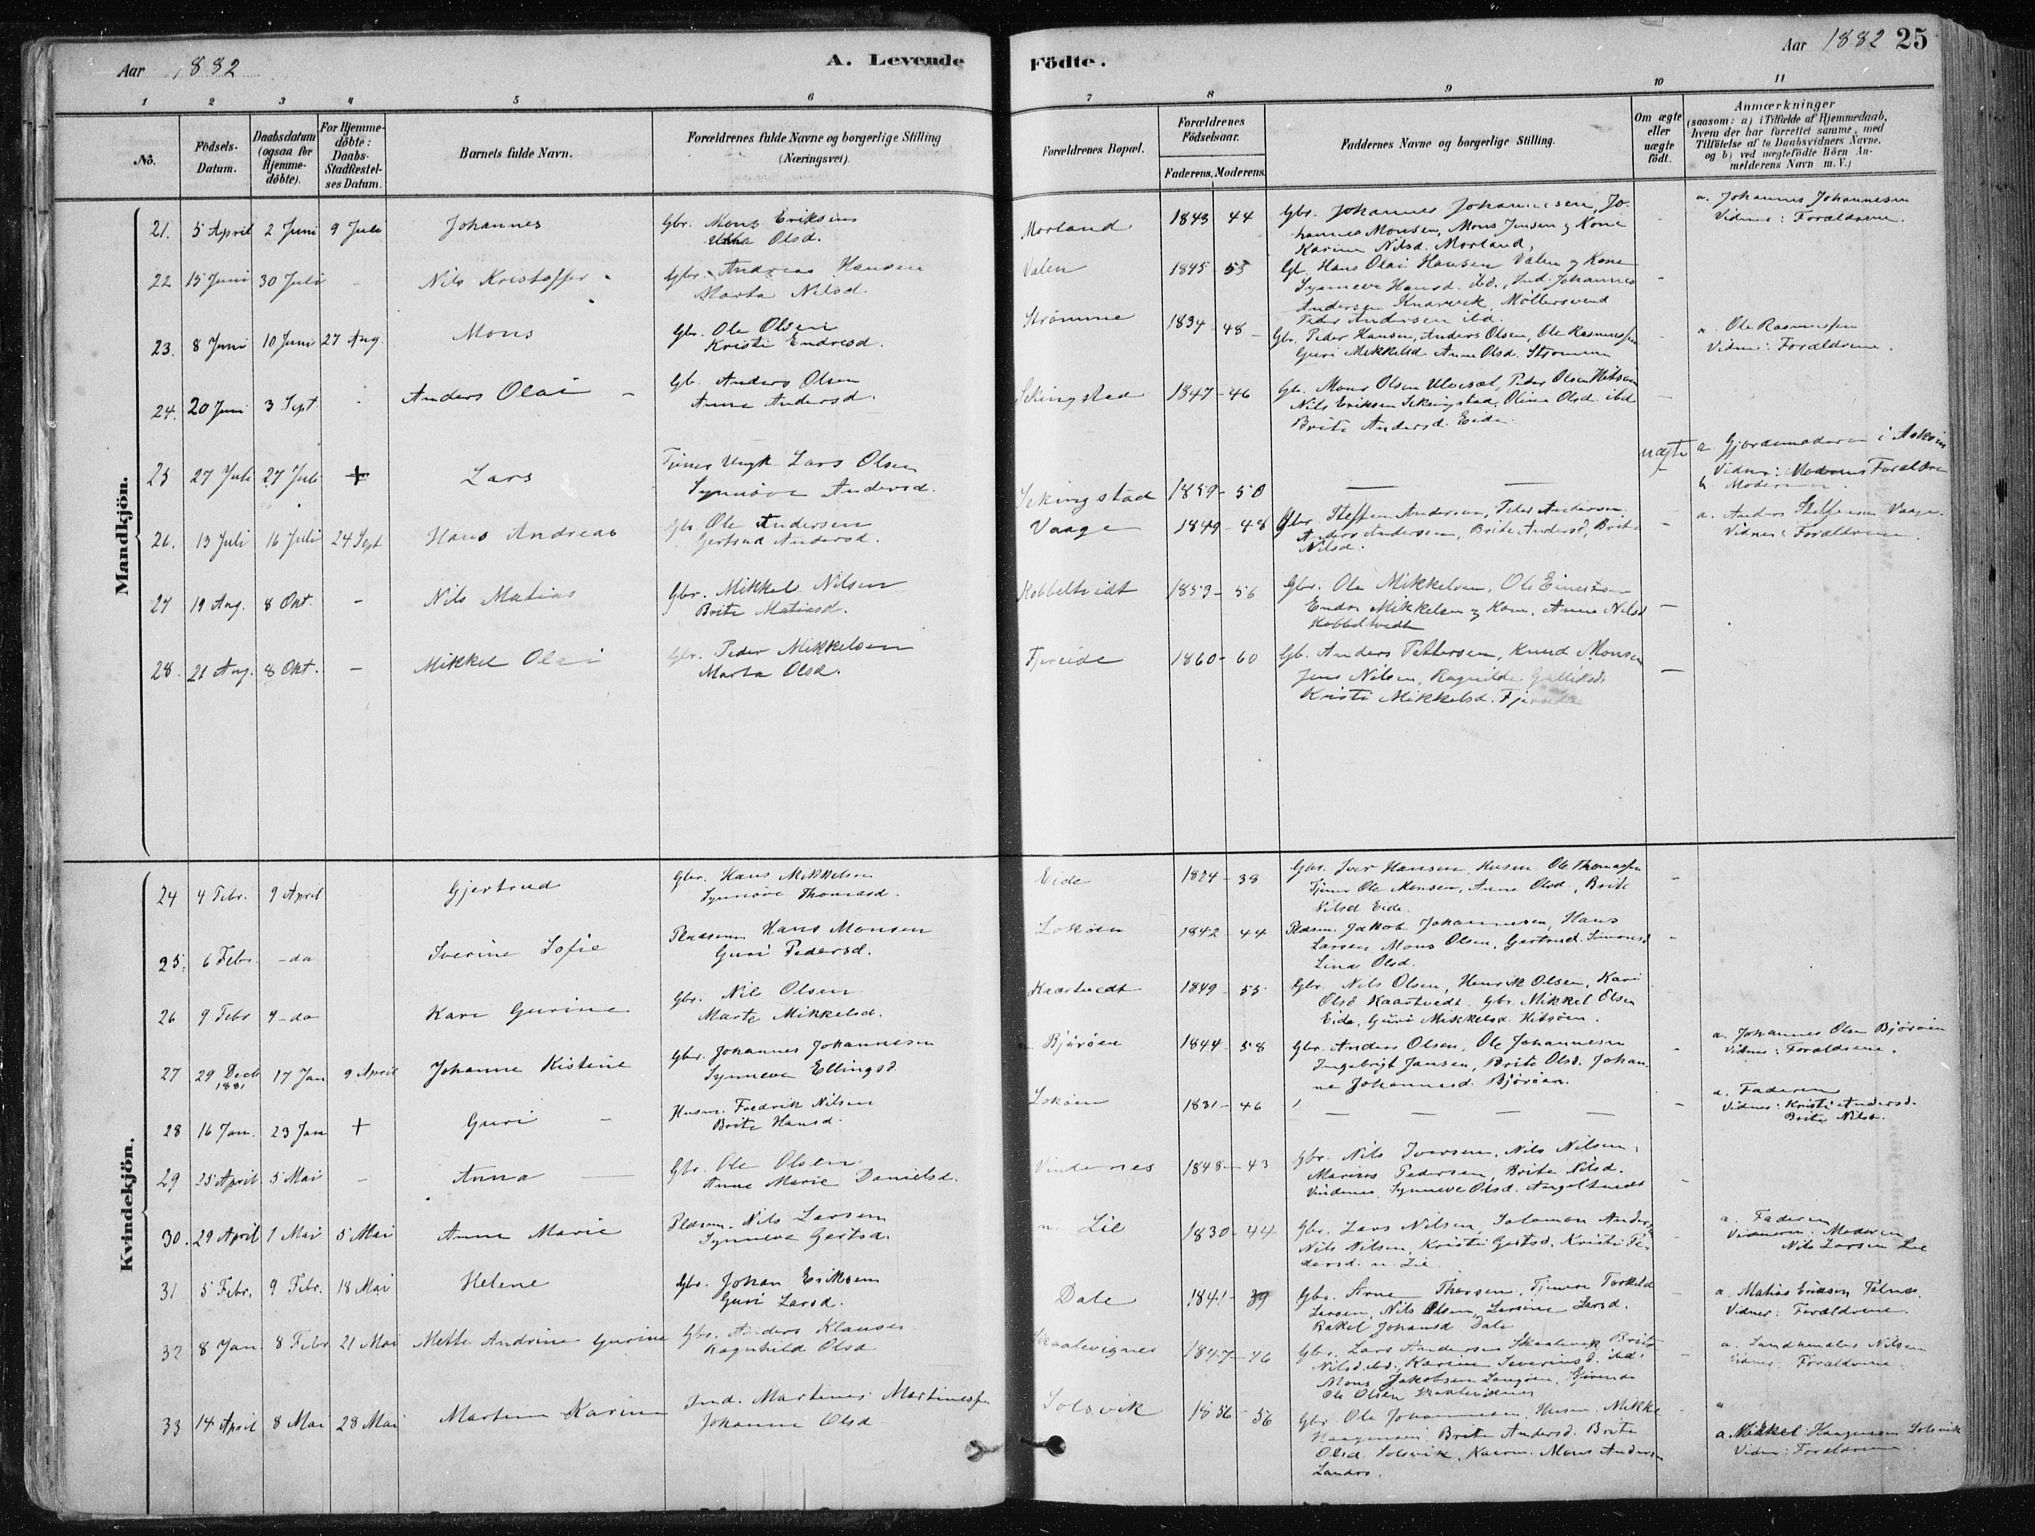 Aar 1882
A. Levende
Födte.
Aar 1882 25
1 2 3 4 5 6 7 8 9 10 11
No.
Födsels-
Datum.
Daabsdatum
(ogsaa for
Hjemme-
döbte).
For Hjemme-
döbte:
Daabs-
Stadfæstel-
ses Datum.
Barnets fulde Navn.
Forældrenes fulde Navne og borgerlige Stilling
(Næringsvei).
Forældrenes Bopæl.
Forældrenes
Födselsaar.
Faderens. Moderens.
Faddernes Navne og borgerlige Stilling.
Om ægte
eller
uægte
födt.
Anmærkninger
(saasom: a) i Tilfælde af Hjemmedaab,
hvem der har forrettet samme, med
Tilföielse af to Daabsvidners Navne,
og b) ved uægtefödte Börn An-
melderens Navn m. V.)
Mandkjön.
21. 5 April 2 Juni 9 Juli Johannes Gbr. Mons Eriksen
Olsd.
Morland 1843 44 Gbr. Johannes Johannesen, Jo-
hannes Monsen, Mons Jensen og Kone
Karine Nilsd. Morland,
a. Johannes Johannesen
Vidner: Forældrene.
22 15 Juni 30 Juli - Nils Kristoffer Gbr. Andreas Hansen
Marta Nilsd.
Valen 1845 - 53 Gb. Hans Olai Hansen Valen og Kone
Synneve Hansd. ibd., Ind. Johannes
Andersen Knarvik, Møllersvend
Peder Andersen ibd.
23. 8 Juni 10 Juni 27 Aug. Mons Gbr. Ole Olsen
Kristi Endresd.
Strømme 1834 - 48 - Gbr. Peder Hansen, Anders Olsen, Ole Rasmussen
Guri Mikkelsd. Anne Olsd. Strømme
a. Ole Rasmussen
Vidner: Forældrene.
24. 20 Juni 3 Sept Anders Olai - Gb. Anders Olsen
Anna Andersd.
Skingstad 1847 - 46 Gbr. Mons Olsen Ulveset, Peder Olsen Hitsøen
Nils Eriksen Skingstad, Oline Olsd. ibd
Brite Andersd. Eide.
25 27 Juli 27 Juli + Lars Tjener Ungk. Lars Olsen
Synnøve Andersd.
Skingstad 1859 - 50 — — uægte a Gjordemoderen i Askøen
Vidner: Forældrene
b. Moderen.
26. 13 Juli 16 Juli 24 Sept Hans Andreas Gbr Ole Andersen
Gertrud Andersd.
Vaage 1849 - 48 Gbr. Steffen Andersen, Peder Andersen
Anders Andersen, Brite Andersd, Brite
Nilsd.
a. Anders Steffensen Vaage.
Vidner: Forældrene.
27 19 Aug. 8 Okt. - Nils Matias Gbr. Mikkel Nilsen
Brite Matiasd.
Kobbeltvedt 1853 - 56 Gbr. Ole Mikkelsen, Ole Einertsen
Endre Mikkelsen og Kone, Anne Nilsd
Kobbeltvedt
28. 21 Aug. 8 Okt. - Mikkel Olai Gbr. Peder Mikkelsen
Marta Olsd.
Fjæreide 1860 - 60 Gb. Anders Pettersen, Knud Monsen
Jens Nilsen, Ragnilde Gulliksd.
Kristi Mikkelsd. Fjæreide
Kvindekjön.
24 4 Febr. 9 April Gjertrud Gbr. Hans Mikkelsen
Synnøve Thomasd.
Eide 1824 - 38 Gbr. Iver Hansen, Husm Ole Thomassen
Tjener Ole Monsen, Anne Olsd., Brite
Nilsd Eide.
25. 6 Febr. - do Iverine Sofie Pladsm Hans Monsen
Guri Pedersd.
Lokøen 1842 44 Pladsm. Jakob Johannesen, Hans
Larsen Mons Olsen, Gertrud Simonsd
Lina Olsd.
26 9 Febr 9 - do Kari Gurine Gbr. Nils Olsen
Marte Mikkelsd.
Kaartvedt 1849 - 55 Gbr. Nils Olsen, Henrik Olsen, Kari
Olsd Kaartvedt. Gbr. Mikkel Olsen
Eide, Guri Mikkelsd. Hitsøen.
27 29 Decb 1881 17 Jan 9 April Johanne Kistine Gbr. Johannes Johannesen
Synneve Ellingsd
Bjørøen 1844 - 58 Gbr. Anders Olsen, Ole Johannesen
Ingebrigt Jansen, Brite Olsd. Johan-
ne Johannesd. Bjørøen.
a. Johannes Olsen Bjørøen
Vidner: Forældrene.
28 16 Jan. 23 Jan + Guri - Husm. Fredrik Nilsen
Brite Hansd.
Lokøen 1831 - 46 — — — —
a. Faderen
Vidner: Kristi Andersd.
Brite Nilsd.
29 25 April 5 Mai - Anna Gbr. Ole Olsen
Anne Marie Danielsd.
Vindenes 1848 - 43 Gbr. Nils Iversen, Nils Nilsen,
Marinus Pedersen, Brite Nilsd.
Vindenes, Synneve Olsd. Angeltvedt
30. 29 April 1 Mai 5 Mai Anne Marie Pladsm. Nils Larsen
Synneve Gertsd.
n. Lie 1830 - 44 Gbr. Lars Nilsen, Salomon Anders
Nils Nilsen, Kristi Gertsd. Kristi Pe-
dersd. n. Lie.
a. Faderen
Vidnerne. Moderen
Nils Larsen Lie
31 5 Febr. 9 Febr. 18 Mai Helene Gbr. Johan Eriksen
Guri Larsd.
Dale 1841 - 39 Gbr. Arne Thorsen, Tjener Torkild
Larsen, Nils Olsen, Larsine Larsd.
Rakel Johansd Dale
a. Matias Eriksen Telnes.
Vidner: Forældrene.
32 8 Jan. 8 Febr 21 Mai Mette Andrine Gurine Gbr. Anders Klausen
Ragnhild Olsd
Skaalevignes 1847 - 46 Gbr. Lars Andersen Skaalevik Brite
Nilsd. ibd. Karine Severinsd. ibd.
Mons Jakobsen Langøen,
Ole Olsen Skaalevignes
a. Nilsen
Vidner: Forældrene.
33 14 April 8 Mai 28 Mai Martine Karine Ind. Martines Martinessen
Johanne Olsd
Solsvik 1856 - 56 Gbr. Ole Johannesen, Husm. Mikkel
Haagensen, Brite Andersd. Brite
Olsd. Solsvik, Mons Anders
Landro.
a. Mikkel Haagensen Solsvik
Vidner: Forældrene